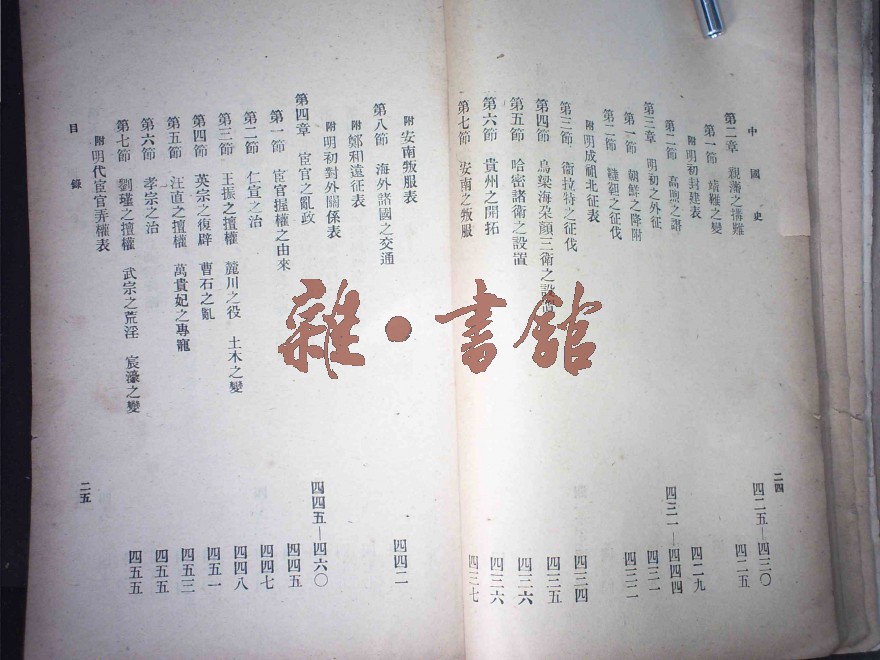 中國史
二四
第二章 親藩之搆難 四二五—四三〇
第一節 靖難之變 四二五
附 明初封建表
第二節 高煦之譖 四二九
第三章 明初之外征 四三一—四四四
第一節 朝鮮之降附 四三一
第二節 韃靼之征伐 四三二
附 明成祖北征表
第三節 衞拉特之征伐 四三四
第四節 烏梁海朶顏三衞之設置 四三五
第五節 哈密諸衞之設置 四三六
第六節 貴州之開拓 四三六
第七節 安南之叛服 四三七
附 安南叛服表
第八節 海外諸國之交通 四四二
附 鄭和遠征表
附 明初對外關係表
第四章 宦官之亂政 四四五—四六〇
第一節 宦官握權之由來 四四五
第二節 仁宣之治 四四七
第三節 王振之擅權 麓川之役 土木之變 四四八
第四節 英宗之復辟 曹石之亂 四五一
第五節 汪直之擅權 萬貴妃之專寵 四五三
第六節 孝宗之治 四五五
第七節 劉瑾之擅權 武宗之荒淫 宸濠之變 四五五
附 明代宦官弄權表
目錄
二五
雜·書館